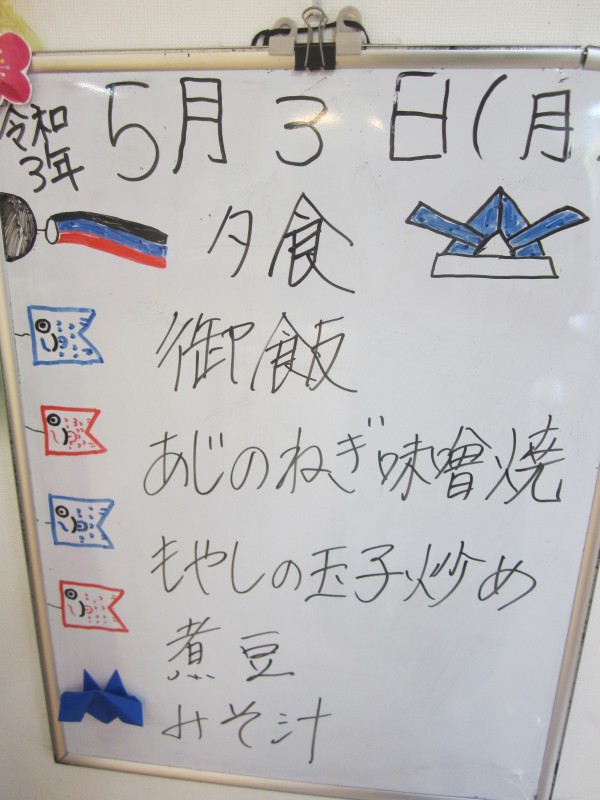 令和
3年
5月3日(月
夕食
御飯
あじのねぎ味噌焼
もやしの玉子炒め
煮豆
みそ汁